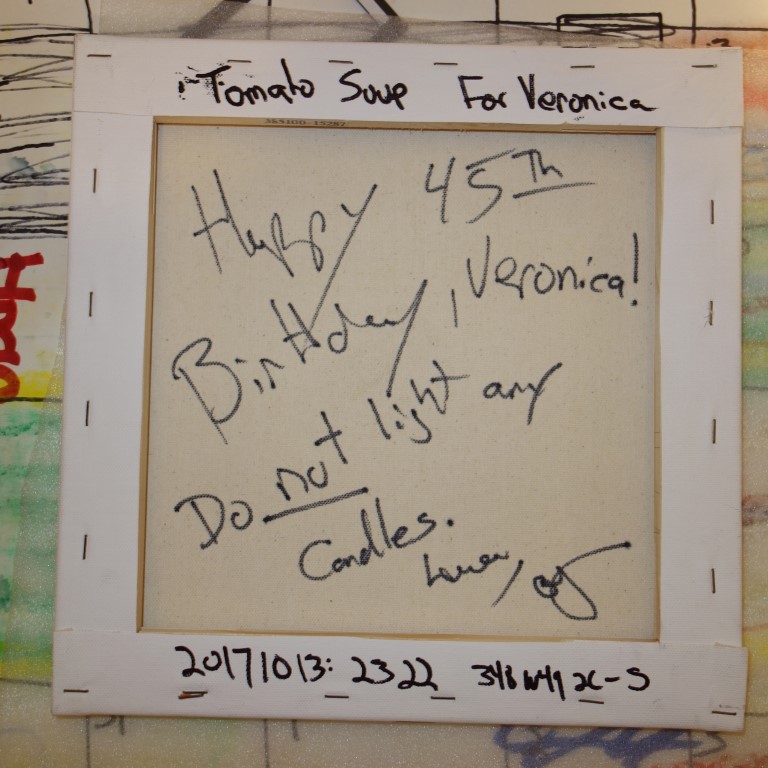 Tomato Soup For Veronica
Happy 45Th
Birthday, Veronica!
Do not light any
Candles.
20171013: 2322 348 W49 2C-S